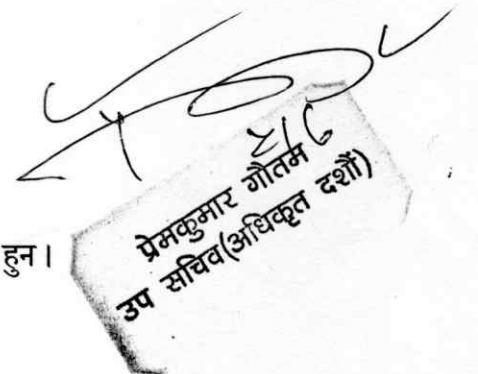 प्रेमकुमार गौतम
उप सचिव(अधिकृत दशौं)
हुन।